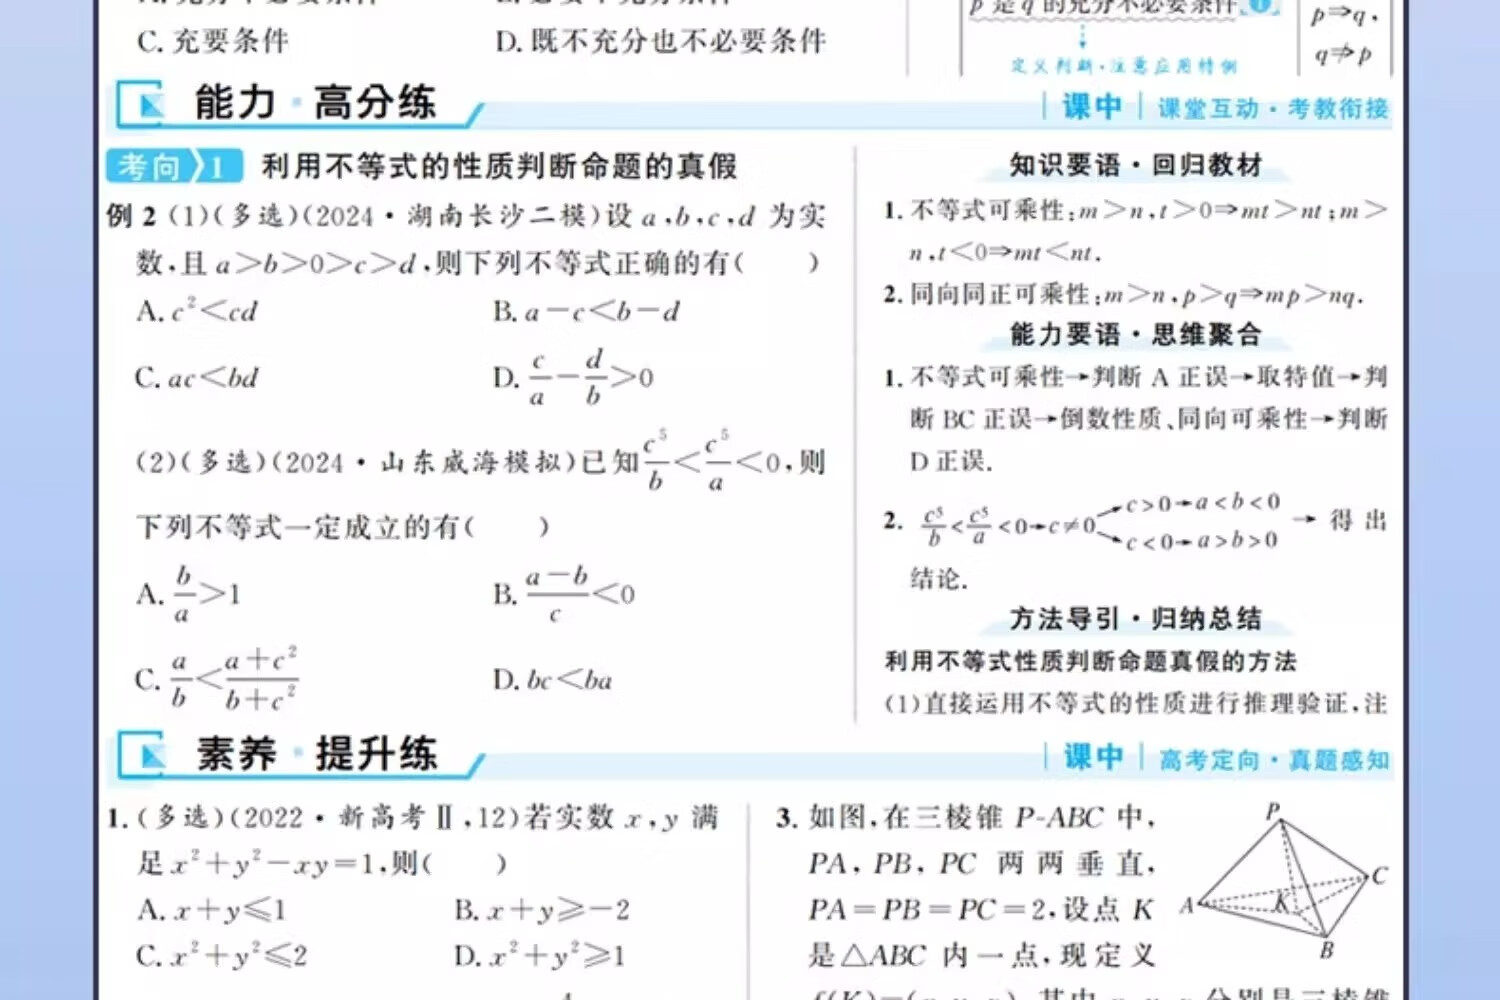 C. 充要条件 D. 既不充分也不必要条件
p 是 q 的充分不必要条件
定义判断·注意应用特例
p⇒q,
q⇏p
能力·高分练
课中 课堂互动·考教衔接
考向1 利用不等式的性质判断命题的真假
例 2 (1)(多选)(2024·湖南长沙二模)设 a,b,c,d 为实
数,且 a>b>0>c>d,则下列不等式正确的有( )
A. c²<cd B. a-c<b-d
C. ac<bd D. c/a - d/b >0
(2)(多选)(2024·山东威海模拟)已知 c⁵/b < c⁵/a <0,则
下列不等式一定成立的有( )
A. b/a >1 B. (a-b)/c <0
C. a/b < (a+c²)/(b+c²) D. bc<ba
知识要语·回归教材
1. 不等式可乘性:m>n,t>0⇒mt>nt;m>
n,t<0⇒mt<nt.
2. 同向同正可乘性:m>n,p>q⇒mp>nq.
能力要语·思维聚合
1. 不等式可乘性→判断 A 正误→取特值→判
断 BC 正误→倒数性质、同向可乘性→判断
D 正误.
2. c⁵/b < c⁵/a <0→c≠0 →c>0→a<b<0 →c<0→a>b>0 → 得出
结论.
方法导引·归纳总结
利用不等式性质判断命题真假的方法
(1)直接运用不等式的性质进行推理验证,注
素养·提升练
课中 高考定向·真题感知
1. (多选)(2022·新高考Ⅱ,12)若实数 x,y 满
足 x²+y²-xy=1,则( )
A. x+y≤1 B. x+y≥-2
C. x²+y²≤2 D. x²+y²≥1
3. 如图,在三棱锥 P-ABC 中,
PA,PB,PC 两两垂直,
PA=PB=PC=2,设点 K
是△ABC 内一点,现定义
P
A
K
C
B